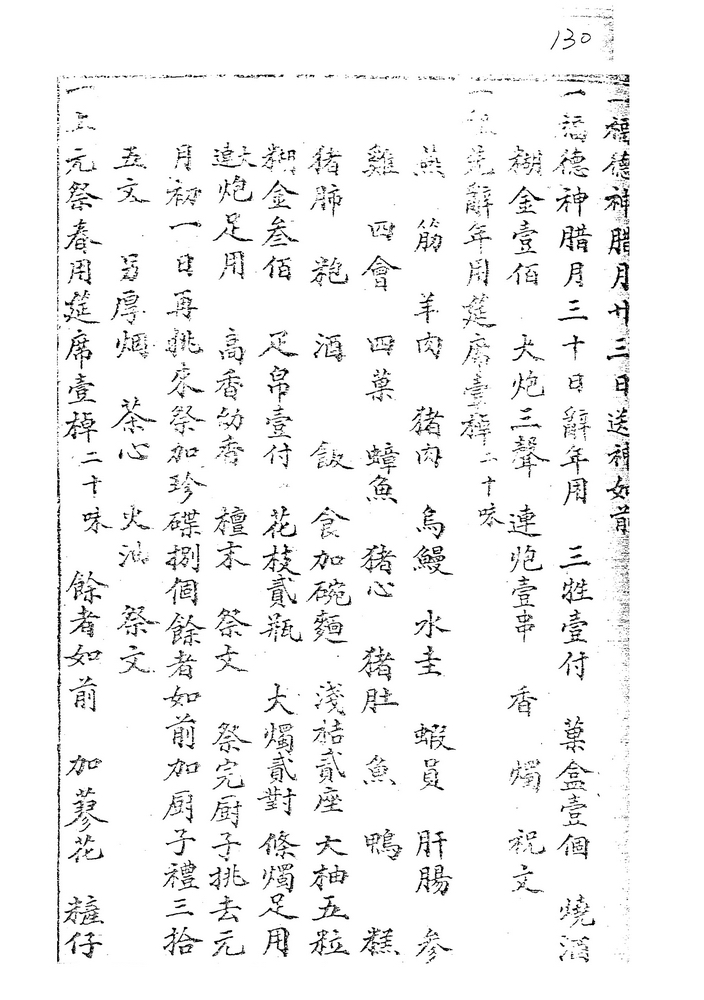 130
一福德神腊月廿三日送神如前
一福德神腊月三十日辭年用 三牲壹付 菓盒壹個 燒酒
糊金壹佰 大炮三聲 連炮壹串 香 燭 祝文
一祖先辭年用筵席壹棹二十味
燕 筋 羊肉 猪肉 烏鰻 水圭 蝦員 肝腸 參
雞 四會 四菓 蟳魚 猪心 猪肚 魚 鴨 糕
猪肺 粃 酒 飯 食加碗麵 淺桔貳座 大柚五粒
糊金叁佰 疋帛壹付 花枝貳瓶 大燭貳對 條燭足用
大連炮足用 高香幼香 檀末 祭文 祭完厨子挑去元
月初一日再挑來祭加珍碟捌個餘者如前加厨子禮三拾
五文 另厚烟 茶心 火油 祭文
一上元祭春用筵席壹棹二十味 餘者如前 加蓼花 糍仔